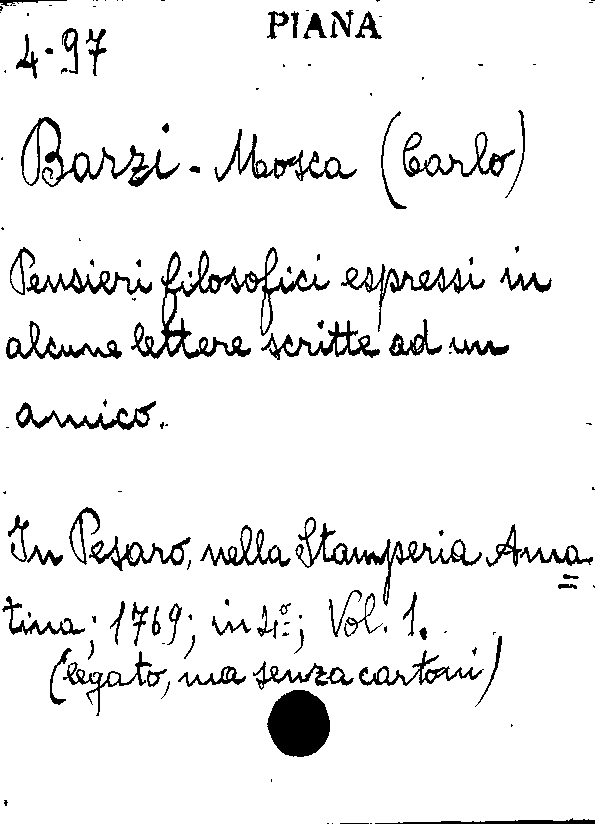 PIANA
4-97
Barzi-Mosca (Carlo)
Pensieri filosofici espressi in
alcune lettere scritte ad un
amico.
In Pesaro, nella Stamperia Ama=
tina; 1769; in 4º; Vol. 1.
(legato, ma senza cartoni)